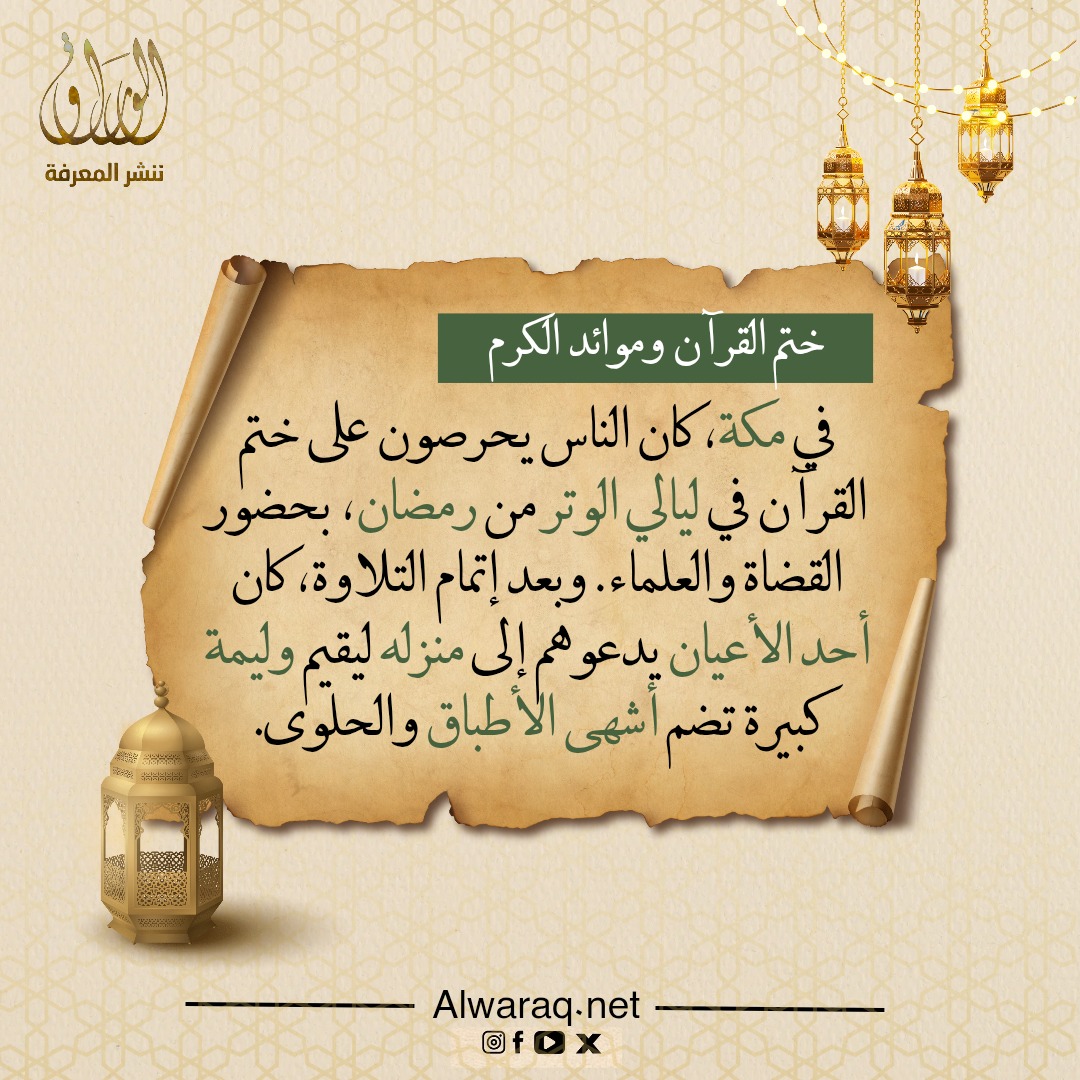 الوراق
ننشر المعرفة
ختم القرآن وموائد الكرم
في مكة، كان الناس يحرصون على ختم
القرآن في ليالي الوتر من رمضان، بحضور
القضاة والعلماء. وبعد إتمام التلاوة، كان
أحد الأعيان يدعوهم إلى منزله ليقيم وليمة
كبيرة تضم أشهى الأطباق والحلوى.
Alwaraq.net